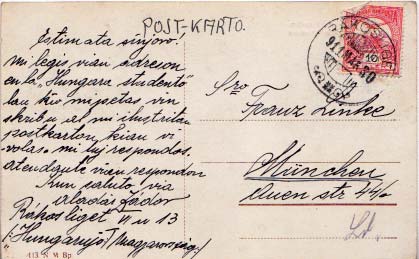 POST-KARTO.
Estimata sinjoro.
Mi legis vian adreson
en la „Hungara studentó"
lau kio mi petas vin
skribu al mi ilustritan
postkarton, kian vi
volas mi tuj respondos.
atendante vian respondon
kun saluto, via
Aladár Zádor
Rákosliget VI u 13
(Hungarujo) (Magyarország)
Sro
Franz Linke
München
Auen str
RÁKOSLIGET
10
413 N M Bp.